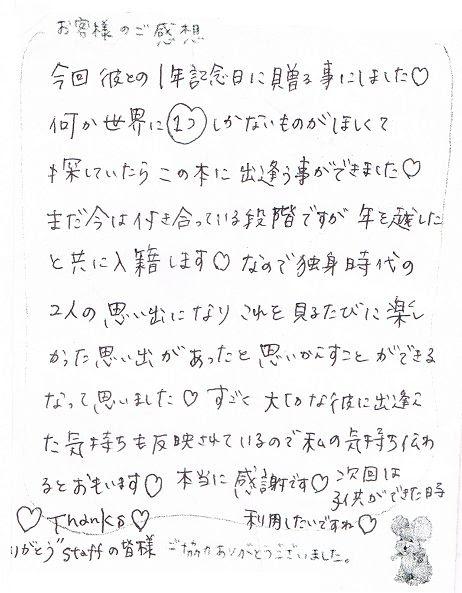 お客様のご感想
今回 彼との1年記念日に贈る事にしました♡
何か世界に1つしかないものがほしくて
探していたら この本に 出逢う事ができました♡
まだ今は付き合っている段階ですが 年を越した
と共に入籍します♡ なので独身時代の
2人の 思い出になり これを 見るたびに楽し
かった 思い出 があったと 思いかえすこと ができる
なって思いました♡ すごく 大切な彼に出逢え
た気持ちも反映されているので私の気持ち伝わ
るとおもいます♡ 本当に 感謝です♡ 次回は
子供ができた時
利用したいですね♡
♡ Thanks ♡
りがとう"staffの皆様 ご協力ありがとうございました。